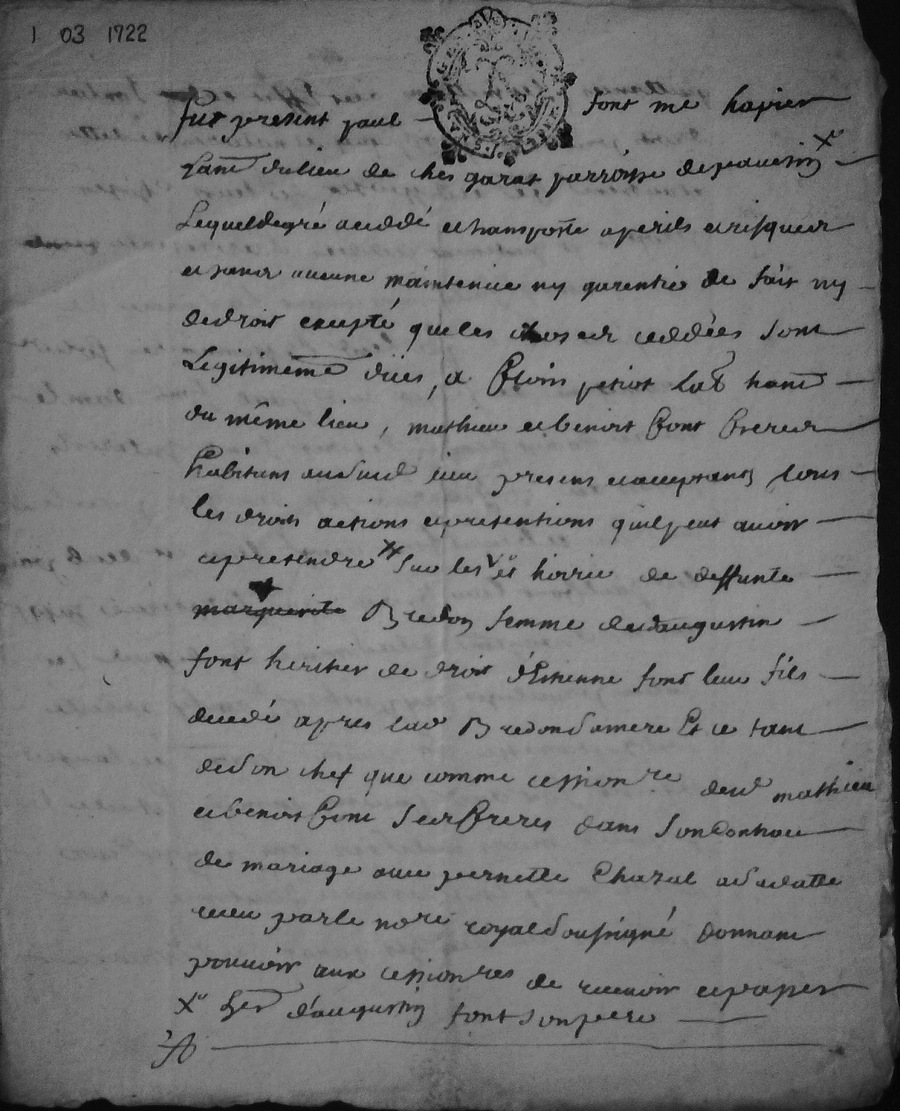 1 03 1722
fut present paul font me papier
hant du lieu de ches garat parroisse de
Lequel de gré a ceddé et transporté a perils et risques
et sans aucune maintenue ny garentie de fait ny
de droit excepté que les choses ceddées sont
Legitimemt dües, a petiot lab hant
du même lieu, mathieu et benoit font freres
habitans audud lieu presens et acceptants tous
les droits actions et pretentions quil peut avoir
et pretendre sur les et hoirie de deffunte
marguerite Bredon femme dud augustin
font heritier de droit d'Etienne font leur fils
decedé apres lad Bredon sa mere Et ce tant
de son chef que comme cessionre desd mathieu
et benoit font ses freres dans son contrac
de mariage avec pernette Chazal a sa datte
receu par le nore royal soussigné donnant
pouvoir aux cessionres de recevoir et passer
d'augustin font son pere